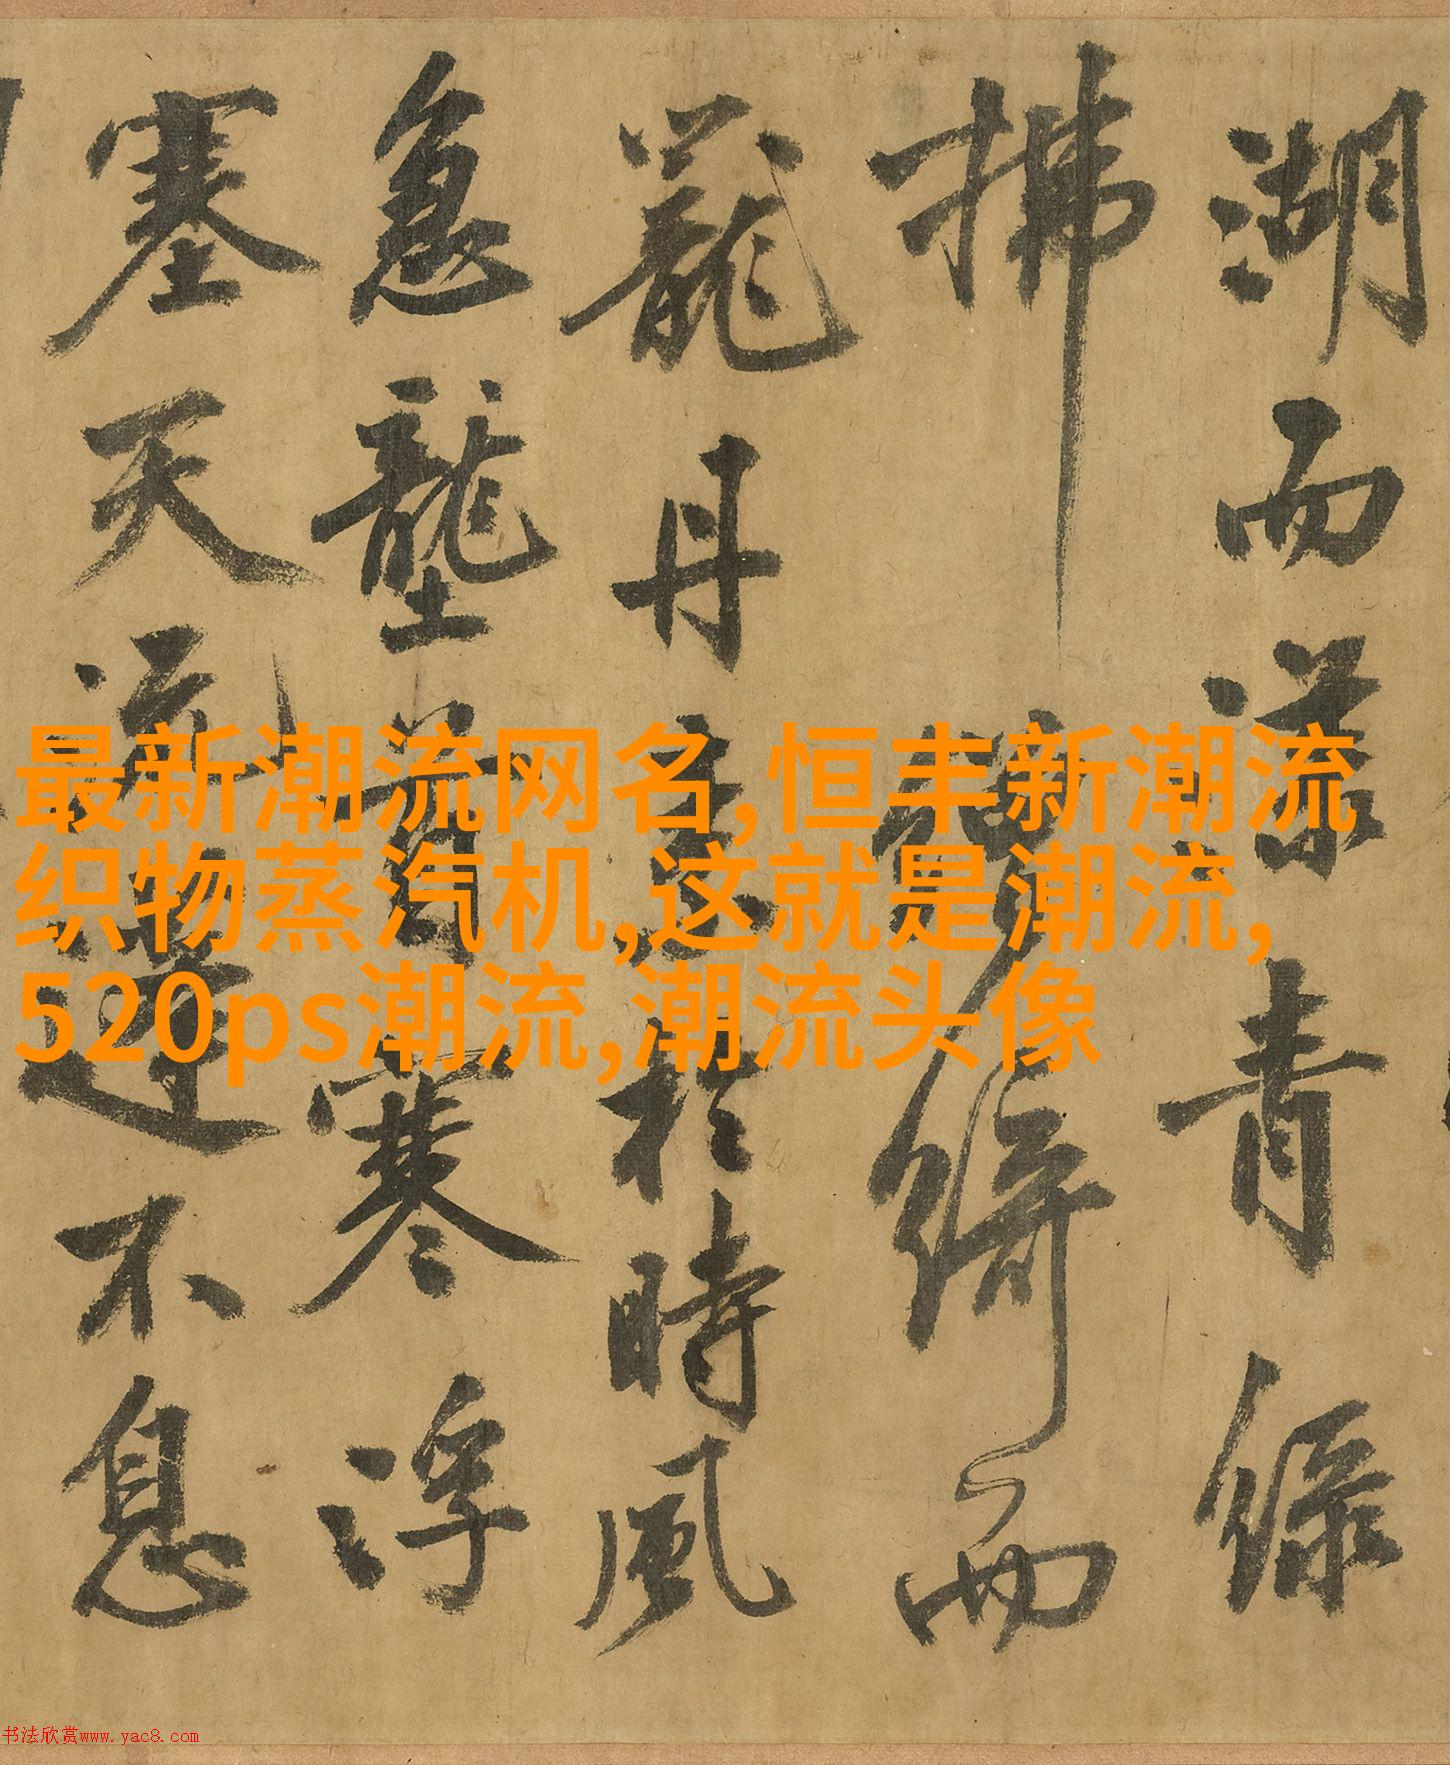 湖而漾青綠
拂綺而
籠丹於時風
急壟首寒浮
塞天不息
最新潮流网名,恒丰新潮流
织物蒸汽机,这就是潮流,
520ps潮流,潮流头像
书法欣赏www.yac8.com